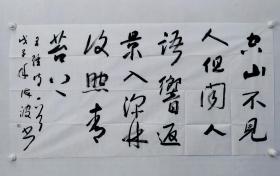 空山不見
人但聞人
語響返
景入深林
復照青
苔上
王維詩
戊子年海波書